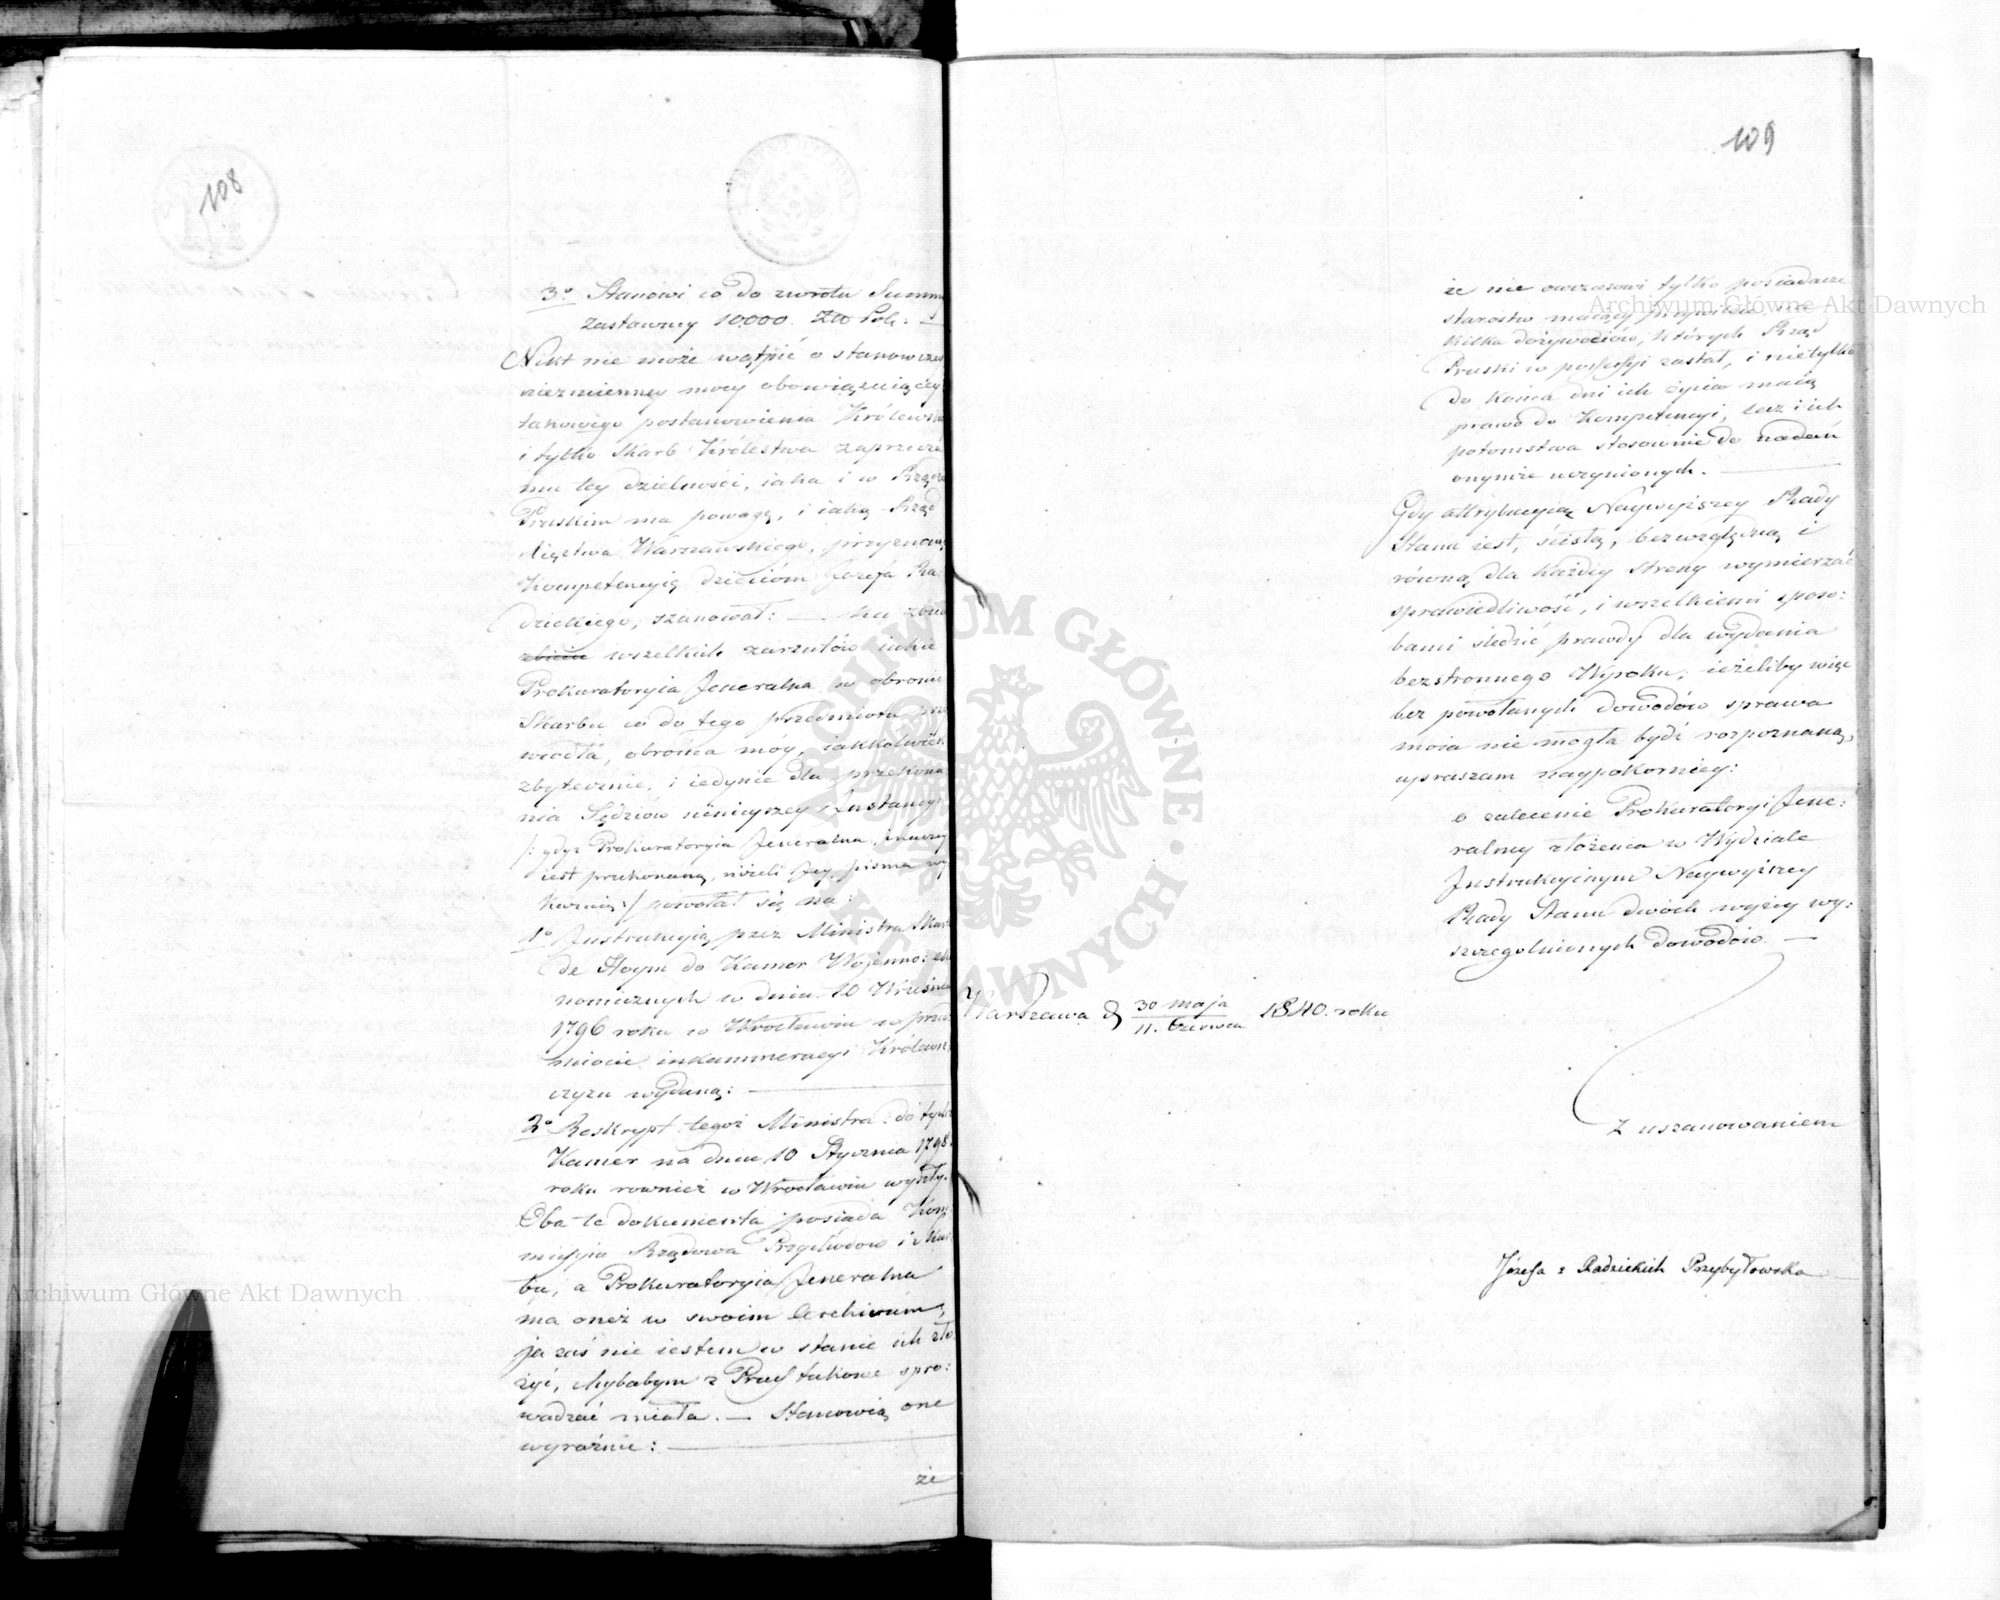 108
3º Stanowi co do zwrotu Summy
zastawney 10,000. Złł Pol: —
Nikt nie może wątpić o stanowczey
niezmienney mocy obowiązuiącey
takowego postanowienia Królewskie
i tylko Skarb Królestwa zaprzecza
mu tey dzielności, iaka i w Rządzie
Pruskim ma powagę, i iaką Rząd
Xięstwa Warszawskiego, przyznaiąc
Kompetencyią dzieciom Jozefa Ra:
dzickiego, szanował: — ku zbiciu
zbicia wszelkich zarzutów iakie
Prokuratoryia Jeneralna w obronie
Skarbu co do tego przedmiotu
wiodła, obrońca móy, iakkolwiek
zbytecznie, i iedynie dla przekona
nia Sędziów ninieyszey Instancyi
/: gdyż Prokuratoryia Jeneralna inaczey
iest przekonaną, niżeli Jey pisma wy
kazuią :/ powołał się na:
1º Instrukcyią przez Ministra Skarbu
de Hoym do Kamer Wojenno: eko
nomicznych w dniu 10 Września
1796 roku w Wrocławiu w przed
miocie inkammeracyi Królewsz
czyzn wydaną: —
2º Reskrypt tegoż Ministra do tychż
Kamer na dniu 10 Stycznia 1798
roku rownież w Wrocławiu wyszły.
Oba te dokumenta posiada Kom
missyia Rządowa Przychodow i Skar
bu, a Prokuratoryia Jeneralna
ma oneż w swoim Archiwum,
ja zaś nie iestem w stanie ich zło
żyć, chybabym z Pruss takowe spro:
wadzać miała. — Stanowią one
wyraźnie: —
że
109
że nie owczasowi tylko posiadacze
starostw maiący przywilea na
kilka dożywociów, których Rząd
Pruski w possessyi zastał, i nietylko
do końca dni ich życia maią
prawo do Kompetencyi, lecz i ich
potomstwa stosownie do nadań
onymże uczynionych. —
Gdy attrybucyią Naywyższey Rady
Stanu iest, ścisłą, bezwzględną i
równą dla każdey strony wymierzać
sprawiedliwość, i wszelkiemi sposo:
bami śledzić prawdy dla wydania
bezstronnego Wyroku, ieżeliby więc
bez powołanych dowodów sprawa
moia nie mogła bydź rozpoznaną,
upraszam naypokorniey:
o zalecenie Prokuratoryi Jene:
ralney złożenia w Wydziale
Instrukcyinym Naywyższey
Rady Stanu dwóch wyżey wy:
szczegolnionych dowodów. —
Warszawa d 30 maja / 11. Czerwca 1840. roku
Z uszanowaniem
Józefa z Radzickich Przybyłowska
Archiwum Główne Akt Dawnych
Archiwum Główne Akt Dawnych
ARCHIWUM GŁÓWNE
AKT DAWNYCH